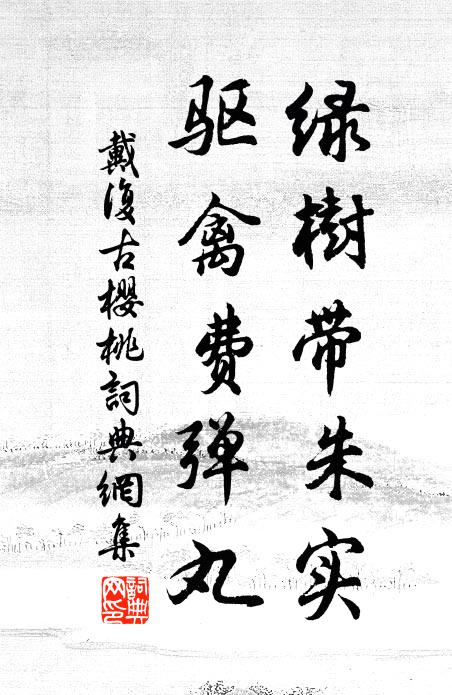 绿樹带朱实
驱禽费弹丸
戴復古櫻桃詞典網集
詞典網印